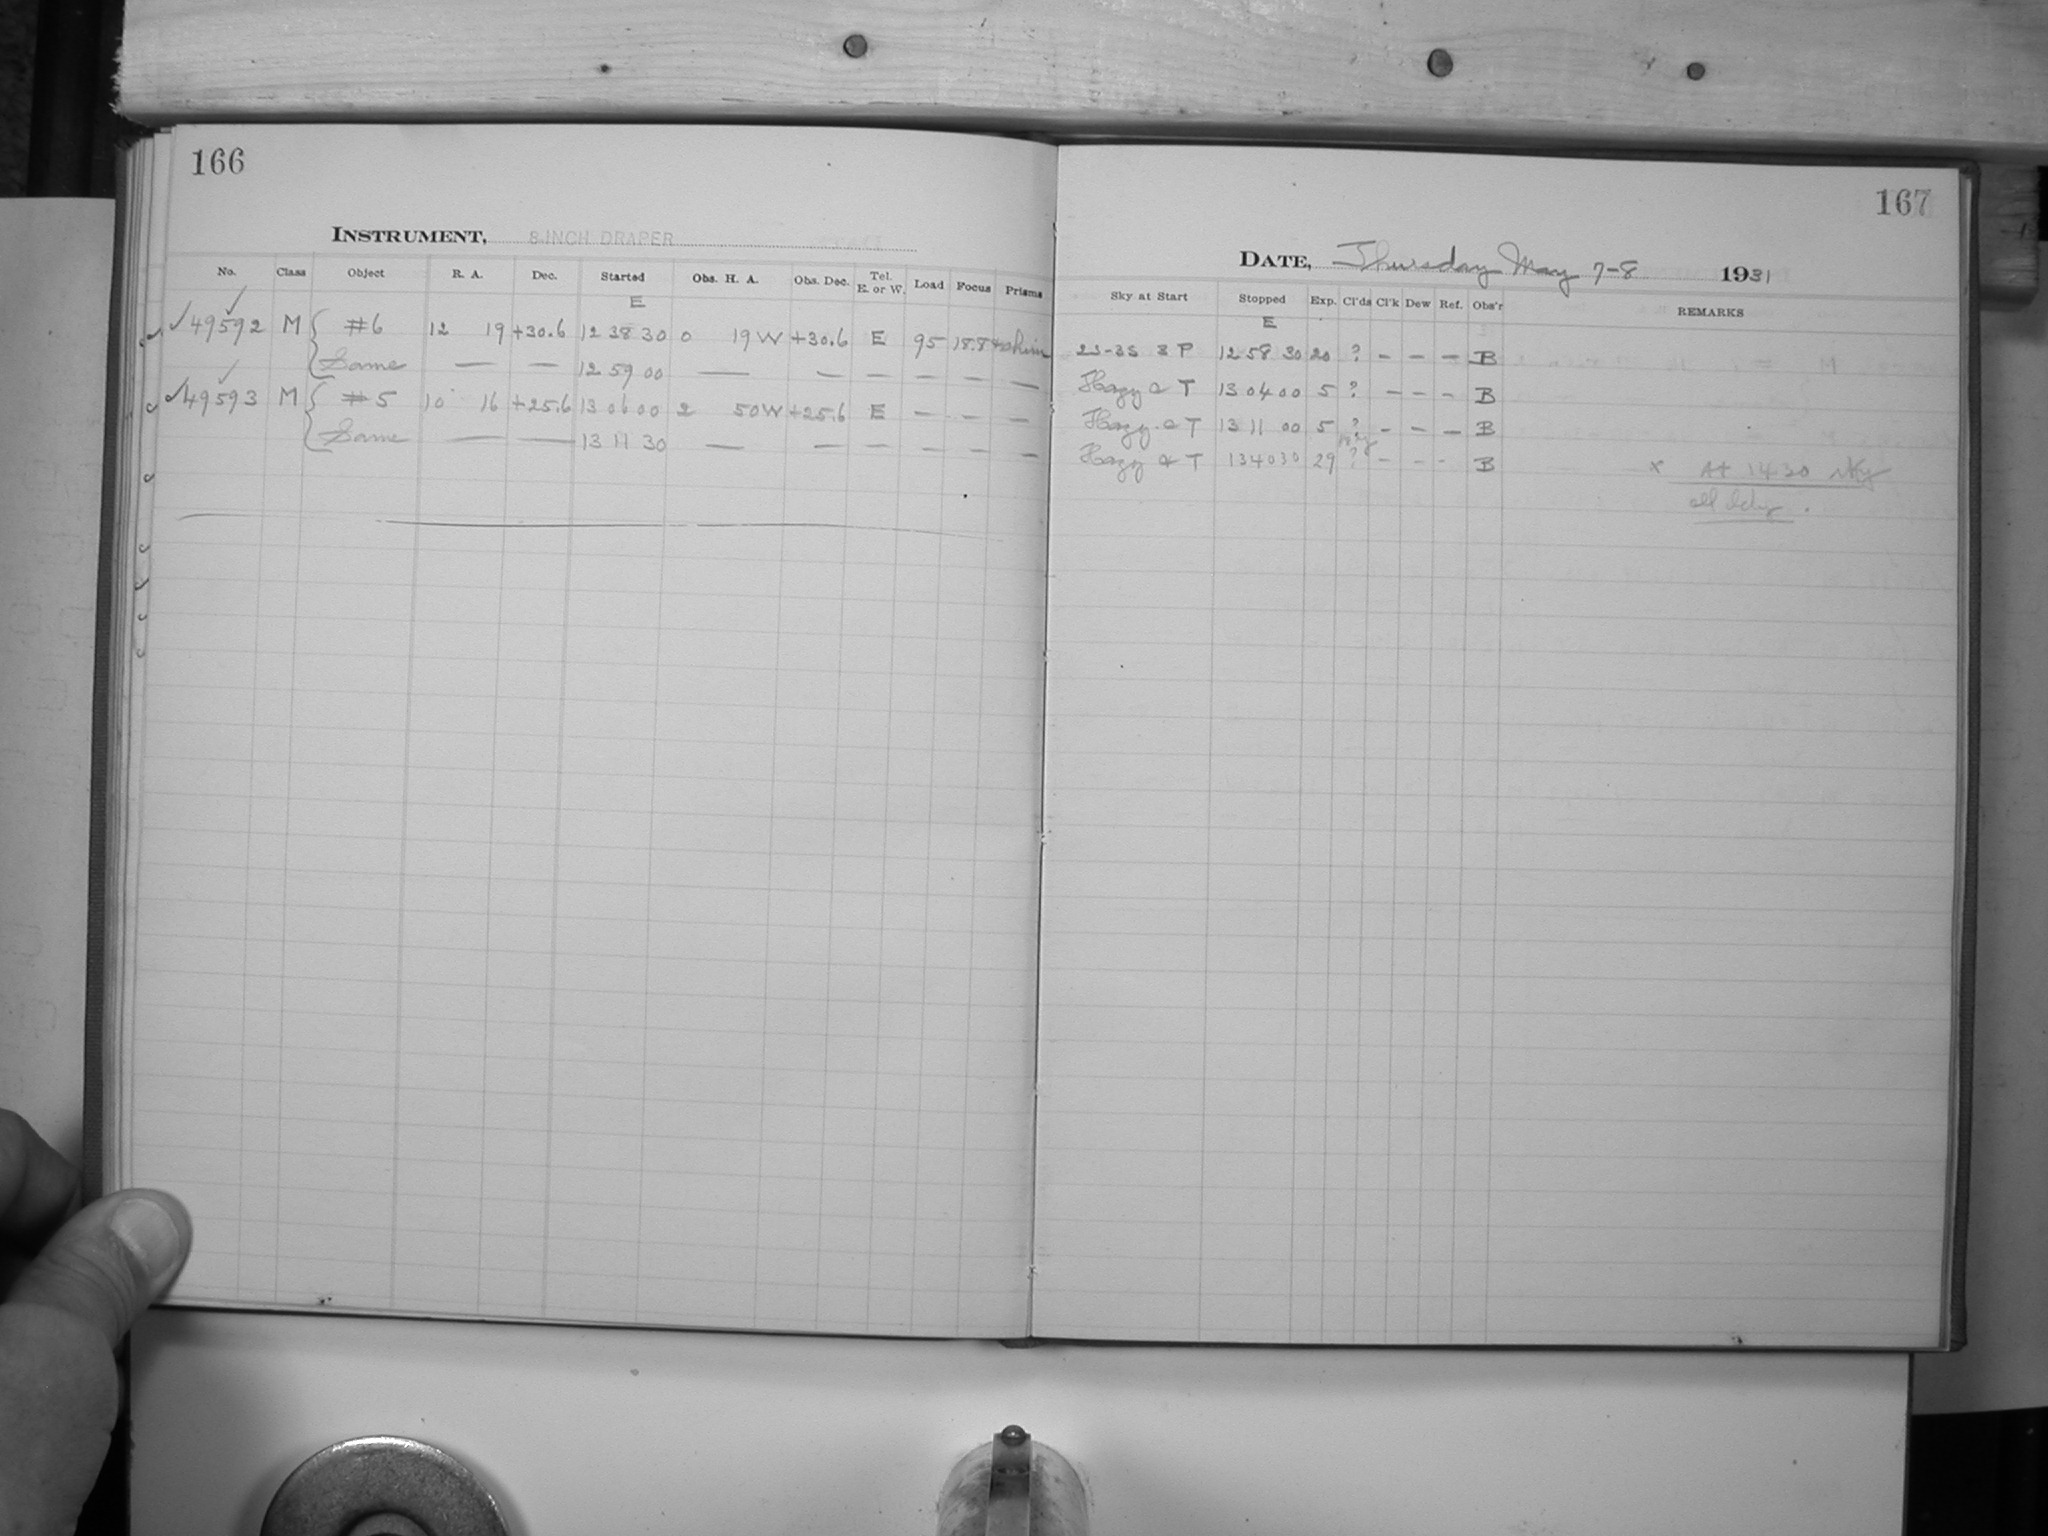 166
INSTRUMENT, 8-INCH DRAPER
No. Class Object R. A. Dec. Started Obs. H. A. Obs. Dec. Tel. E. or W. Load Focus Prisms
E
49592 M #6 12 19 +30.6 12 38 30 0 19 W +30.6 E 95
Same — — 12 59 00 — — — — — —
49593 M #5 10 16 +25.6 13 06 00 2 50 W +25.6 E — — —
Same — — 13 11 30 — — — — — —
167
DATE, Thursday May 7-8 1931
Sky at Start Stopped Exp. Cl'ds Cl'k Dew Ref. Obs'r REMARKS
E
23-35 8 P 12 58 30 20 ? – – – B
Hazy & T 13 04 00 5 ? – – – B
Hazy & T 13 11 00 5 ? – – – B
Hazy & T 13 40 30 29 ? – – - B x At 1430 sky
all